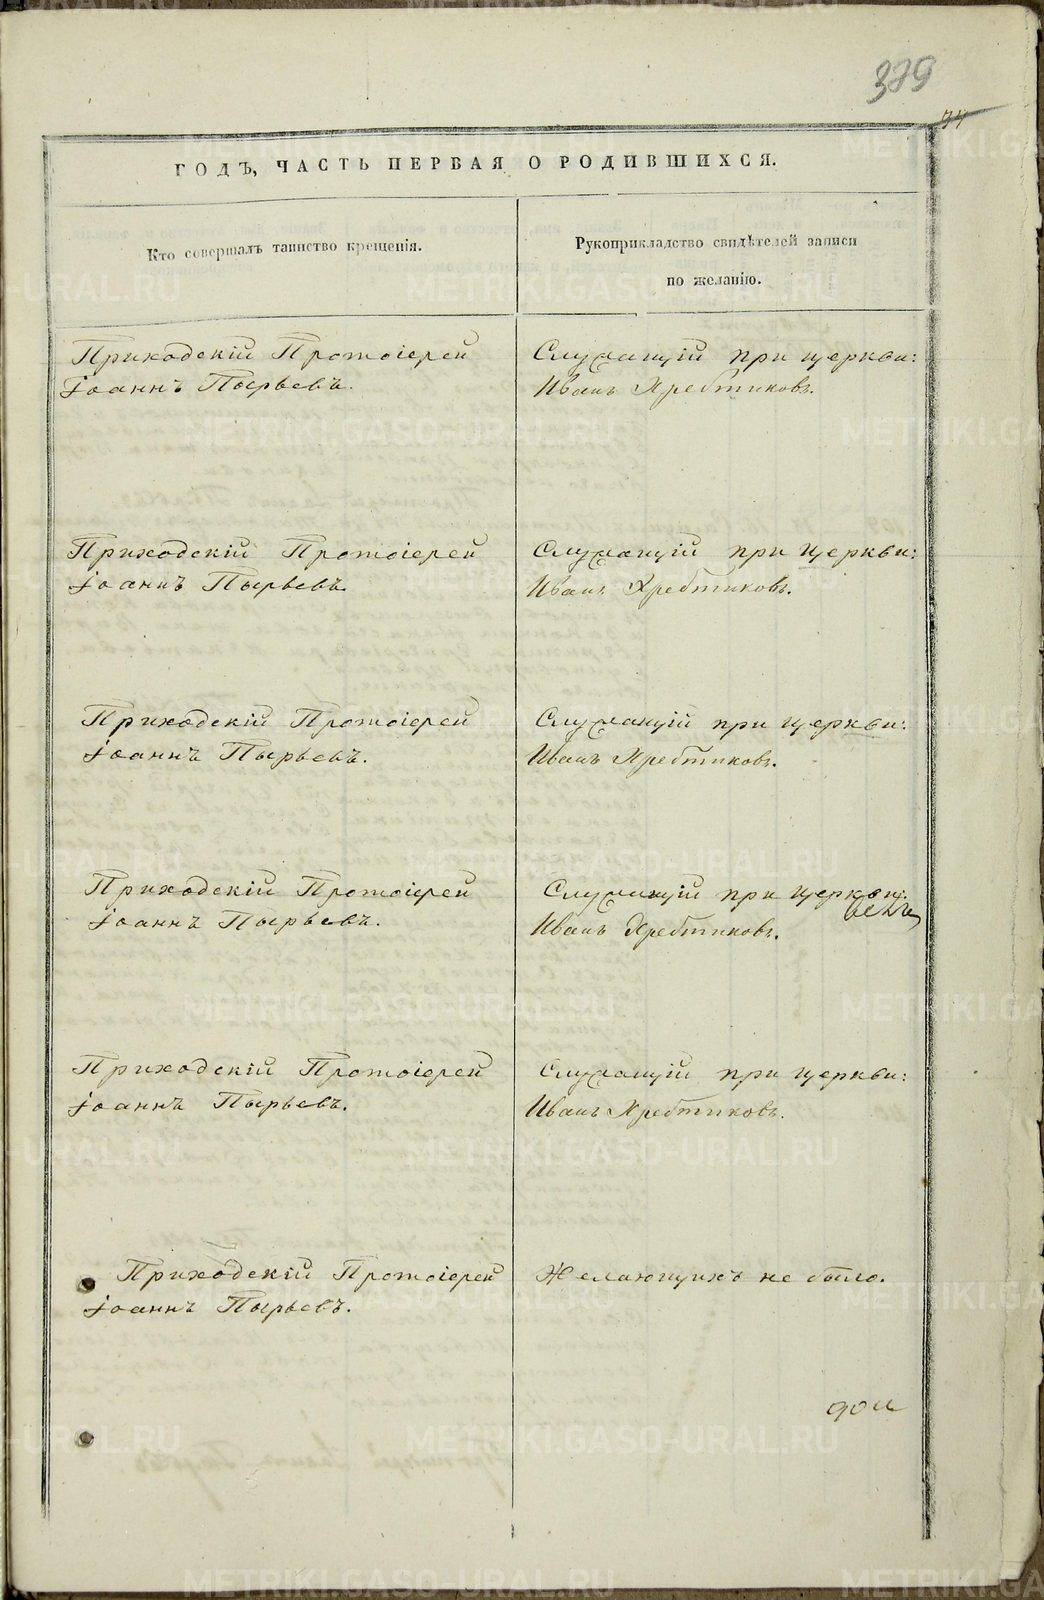 379
74
ГОДЪ, ЧАСТЬ ПЕРВАЯ О РОДИВШИХСЯ.
Кто совершалъ таинство крещенія.
Рукоприкладство свидѣтелей записи
по желанію.
Приходскій Протоіерей
Іоаннъ Пырьевъ.
Служащій при церкви:
Иванъ Хребтиковъ.
Приходскій Протоіерей
Іоаннъ Пырьевъ.
Служащій при церкви:
Иванъ Хребтиковъ.
Приходскій Протоіерей
Іоаннъ Пырьевъ.
Служащій при церкви:
Иванъ Хребтиковъ.
Приходскій Протоіерей
Іоаннъ Пырьевъ.
Служащій при церкви:
Иванъ Хребтиковъ.
Приходскій Протоіерей
Іоаннъ Пырьевъ.
Служащій при церкви:
Иванъ Хребтиковъ.
Приходскій Протоіерей
Іоаннъ Пырьевъ.
Желающихъ не было.
METRIKI.GASO-URAL.RU